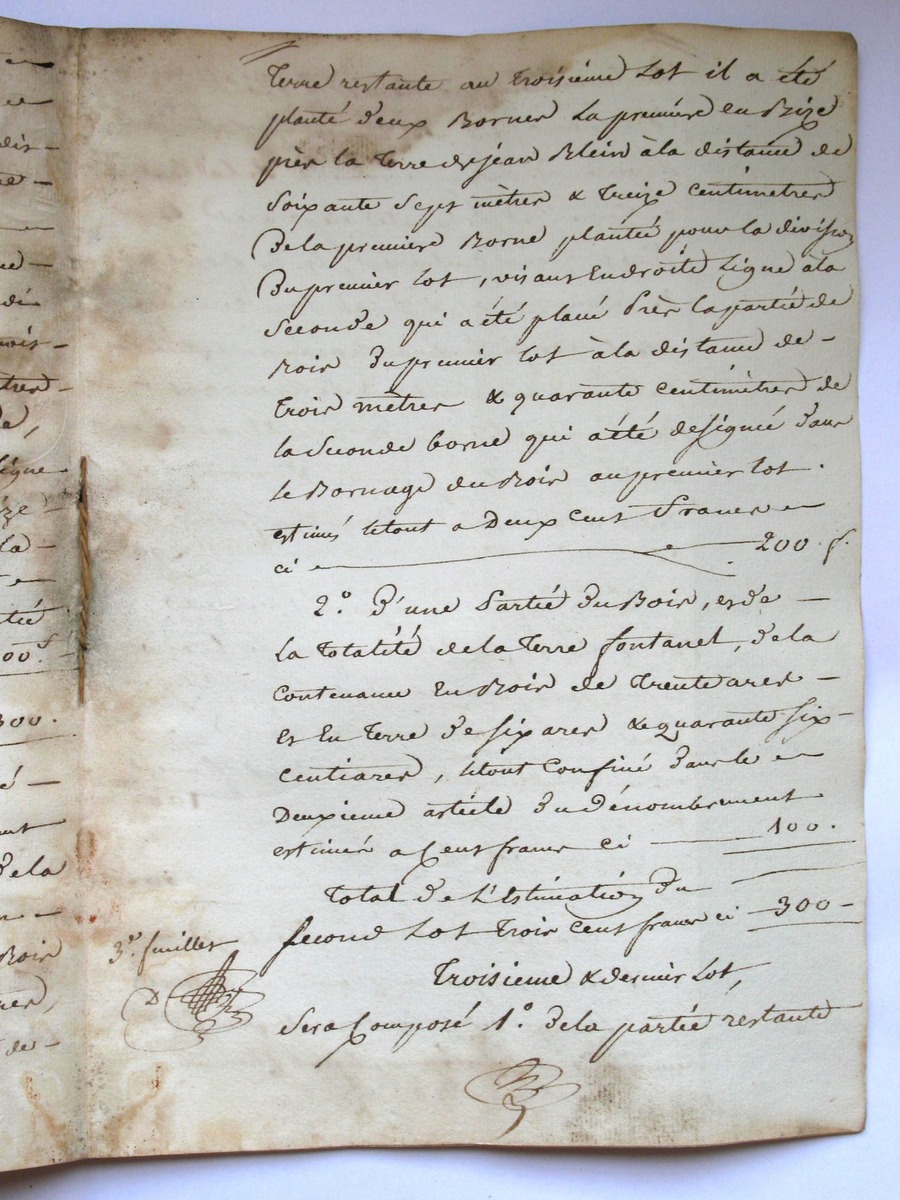 terre restante au troisième Lot il a été
planté deux Bornes La première en Bize
près la terre de jean Blein à la distance de
Soixante Sept mètres & treize centimetres
de la première Borne plantée pour la division
Du premier lot, visant En droite Ligne à la
Seconde qui a été placé Près la partie de
Bois Du premier lot à la distance de -
trois mètres & quarante centimètres de
la Seconde borne qui a été designée dans
le Bornage du Bois au premier lot.
estimés letout a Deux Cent Francs
ci 200 f.
2.° D'une Partie Du Bois, et de -
La totalité de la terre fontanel, de la
Contenance En Bois de trente ares -
et En terre de six ares & quarante six -
Centiares, letout Confiné dans le
Deuxieme article du dénombrement
estimée a Cent francs Ci 100.
Total de L'Estimation du
second Lot trois Cent francs ci 300 -
Troisieme & dernier lot,
Sera Composé 1.° de la partie restante
3.e feuillet
dis-
de
trois-
tres-
de,
ligne
ize-
la-
00f.
300.
de la
Bois
de-